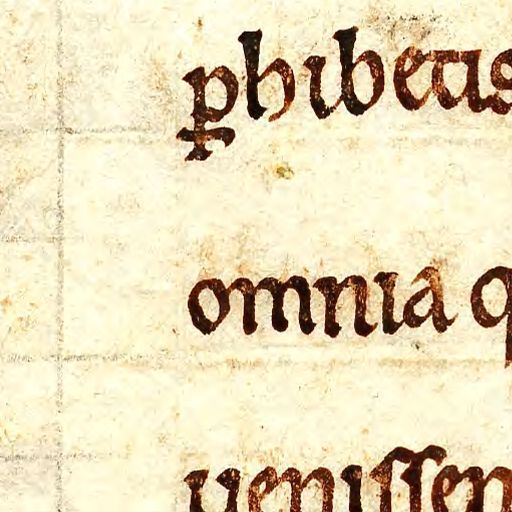 ꝓhibetis
omnia q
uenissen